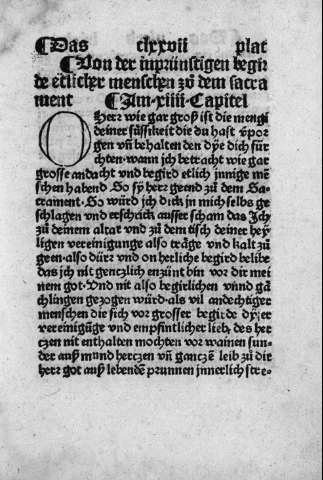 ¶Das clxxvii plat
¶Von der inprünstigen begir
de etlicher menschen zů dem sacra
ment ¶Am ·xiiii· Capitel
O Herr wie gar groß ist die mengi
deiner süssikeit die du hast vpor
gen vñ behalten den dye dich für
chten· wann jch betracht wie gar
grosse andacht vnd begird etlich jnnige mē
schen habend So sy herr geend zů dem Sa-
crament· So würd jch dick jn mich selbs ge
schlagen vnd erschrick ausser scham das Jch
zů deinem altar vnd zů dem tisch deiner hey
ligen vereinigunge also träge vnd kalt zů
geen· also dürr vnd on herliche begird belibe
das jch nit gentzlich enzünt bin vor dir mei
nem got· Vnd nit also begirlichen vnnd gä
chlingen gezogen würd· als vil andechtiger
menschen die sich vor grosser begirde dyser
vereinigūge vnd empfintlicher lieb, des her
czen nit enthalten mochten vor wainen sun-
der auß mund hertczen vñ ganczē leib zů dir
herr got auß lebendē prunnen jnnerlich stre-